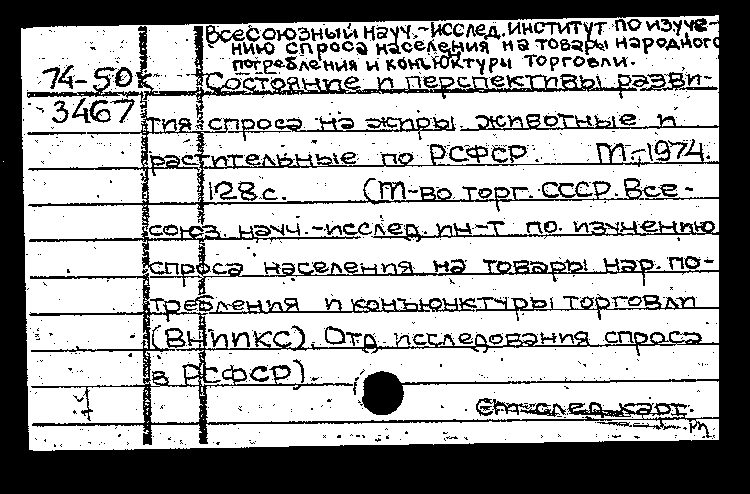 Всесоюзный науч.-исслед. институт по изуче-
нию спроса населения на товары народного
потребления и конъюктуры торговли.
74-50к Состояние и перспективы разви-
3467 тия спроса на жиры животные и
растительные по РСФСР. М.,1974.
128с. (М-во торг. СССР. Все-
союз. науч.-исслед. ин-т по изучению
спроса населения на товары нар. по-
требления и конъюнктуры торговли
(ВНИИКС). Отд. исследования спроса
в РСФСР).
См след карт.